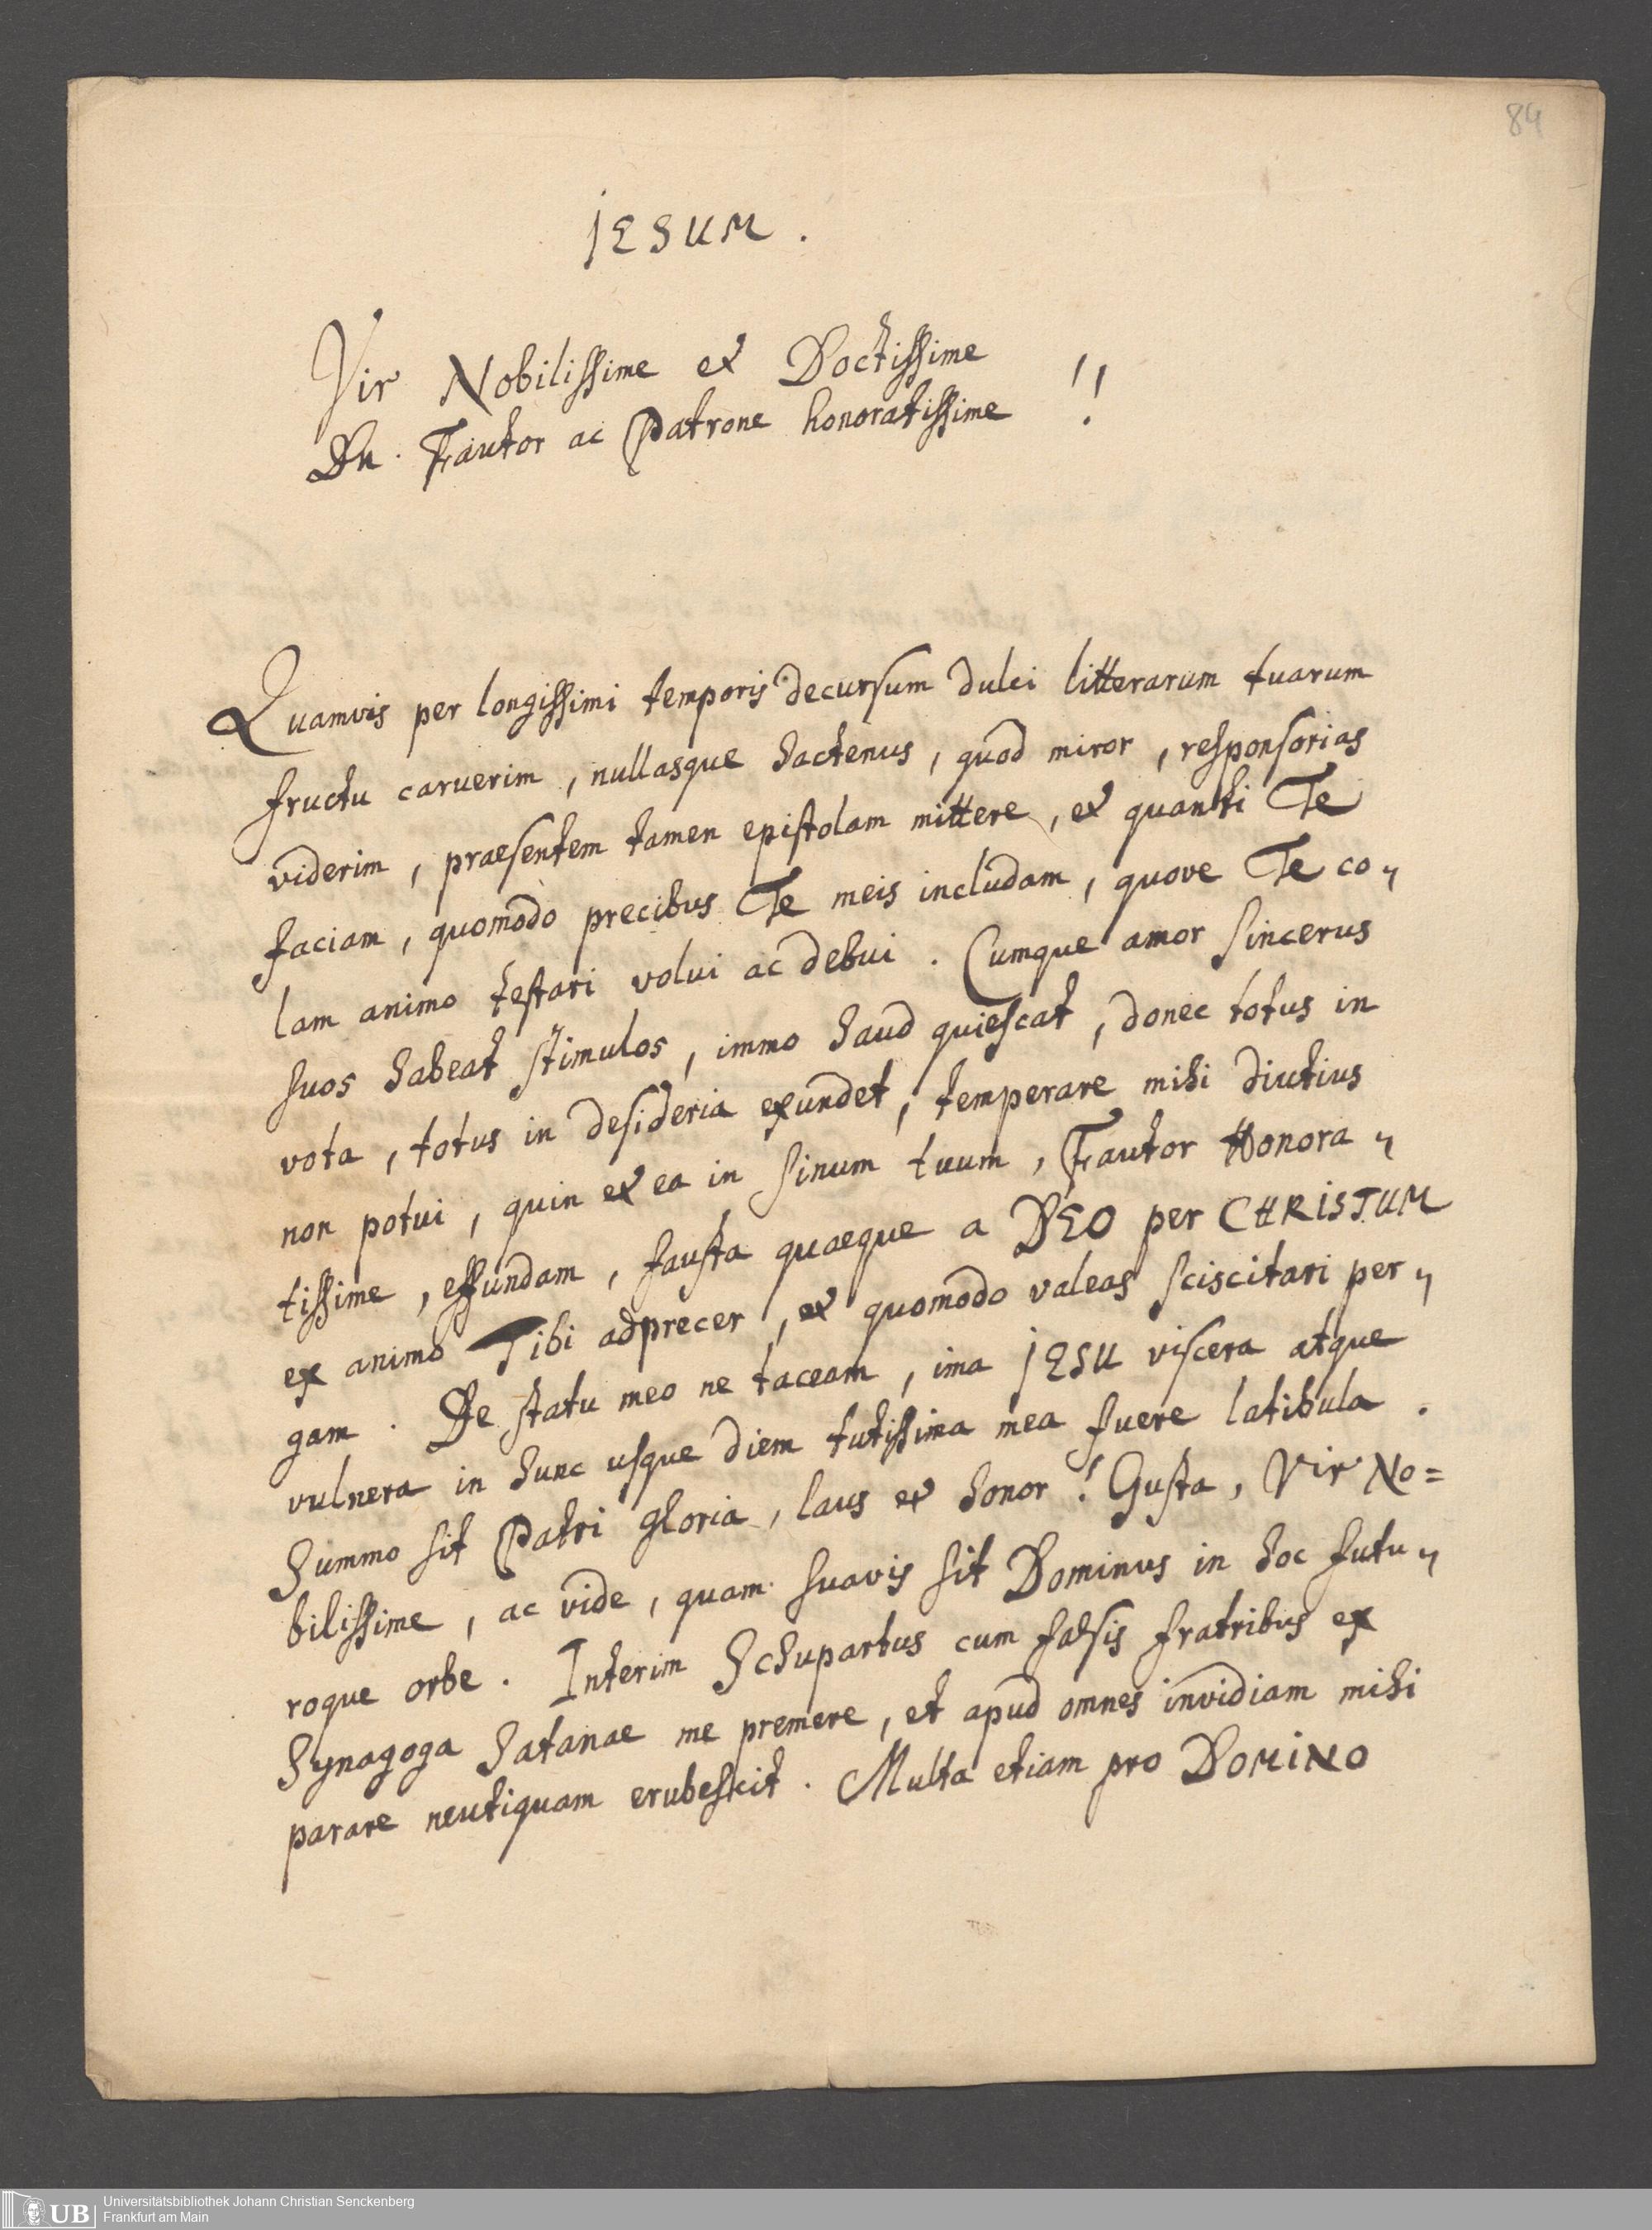 84
IESUM.
Vir Nobilissime et Doctissime
Dn. Fautor ac Patrone honoratissime !!
Quamvis per longissimi temporis decursum dulci litterarum tuarum
fructu caruerim, nullasque hactenus, quod miror, responsorias
viderim, praesentem tamen epistolam mittere, et quanti Te
faciam, quomodo precibus Te meis includam, quove Te co„
lam animo testari volui ac debui. Cumque amor sincerus
suos habeat stimulos, immo haud quiescat, donec totus in
vota, totus in desideria exundet, temperare mihi diutius
non potui, quin et ea in sinum tuum, Fautor Honora„
tissime, effundam, fausta quaeque a DEO per CHRISTUM
ex animo Tibi adprecer, et quomodo valeas sciscitari per„
gam. De statu meo ne taceam, ima IESU viscera atque
vulnera in hunc usque diem tutissima mea fuere latibula.
Summo sit Patri gloria, laus et honor! Gusta, Vir No=
bilissime, ac vide, quam suavis sit Dominus in hoc futu„
roque orbe. Interim Schupartus cum falsis fratribus ex
Synagoga Satanae me premere, et apud omnes invidiam mihi
parare neutiquam erubescit. Multa etiam pro DOMINO
UB
Universitätsbibliothek Johann Christian Senckenberg
Frankfurt am Main